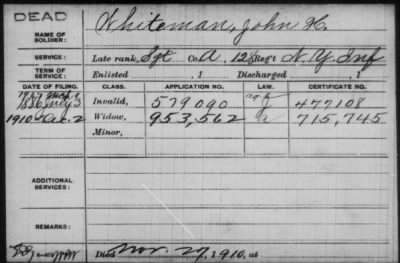 DEAD
NAME OF SOLDIER: Whiteman, John H.
SERVICE: Late rank, Sgt Co. A, 128 Reg't N. Y. Inf
TERM OF SERVICE: Enlisted , 1 Discharged , 1
DATE OF FILING. CLASS. APPLICATION NO. LAW. CERTIFICATE NO.
1886 July 3 Invalid, 579090 477108
1910 Dec. 2 Widow, 953,562 715,745
Minor,
ADDITIONAL SERVICES:
REMARKS:
Died Nov. 27, 1910, at